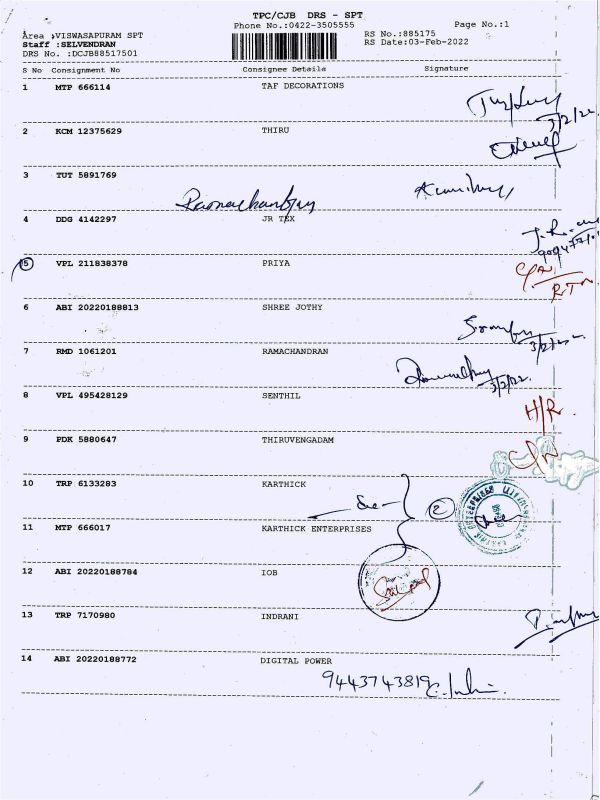 TPC/CJB DRS - SPT
Phone No.:0422-3505555
Page No.:1
Area :VISWASAPURAM SPT
RS No.:885175
Staff :SELVENDRAN
RS Date:03-Feb-2022
DRS No. :DCJB88517501
S No Consignment No Consignee Details Signature
1 MTP 666114 TAF DECORATIONS
3/2/22
2 KCM 12375629 THIRU
3 TUT 5891769
Ramachandran
4 DDG 4142297 JR TEX
5 VPL 211838378 PRIYA
RTN
6 ABI 20220188813 SHREE JOTHY
3/2/22
7 RMD 1061201 RAMACHANDRAN
3/2/22
8 VPL 495428129 SENTHIL
H/R
9 PDK 5880647 THIRUVENGADAM
10 TRP 6133283 KARTHICK
2
11 MTP 666017 KARTHICK ENTERPRISES
12 ABI 20220188784 IOB
13 TRP 7170980 INDRANI
14 ABI 20220188772 DIGITAL POWER
9443743819